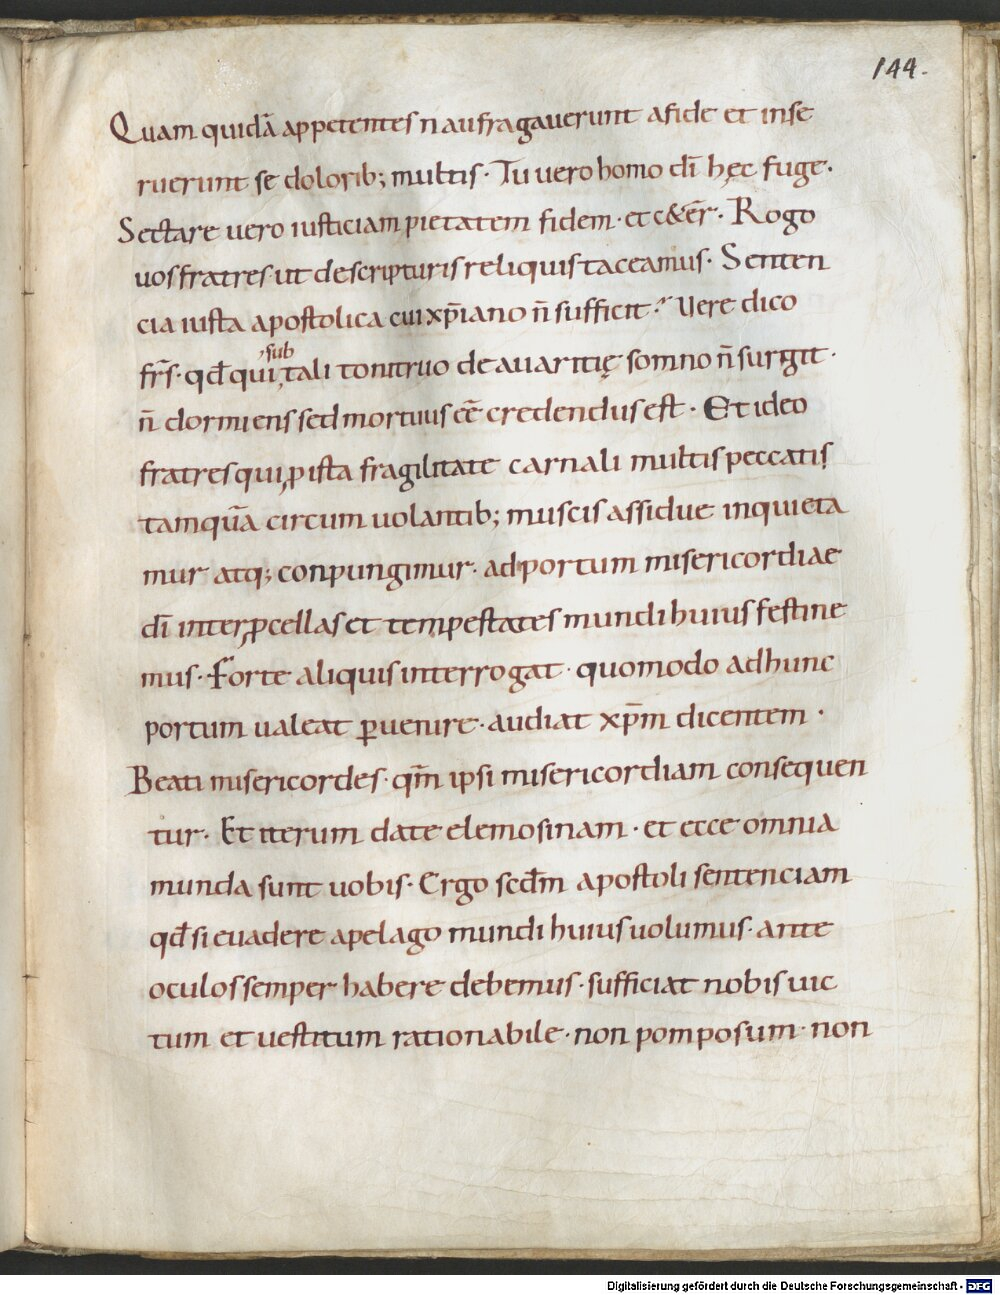 144.
Quam quidā appetentes naufragauerunt a fide et inse
ruerunt se dolorib; multis. Tu uero homo dī hęc fuge.
Sectare uero iusticiam pietatem fidem. et c&ēr. Rogo
uos fratres ut de scripturis reliquis taceamus. Senten
cia iusta apostolica cui xp̄iano n̄ sufficit? Vere dico
fr̄s. qđ qui sub tali tonitruo de auaritię somno n̄ surgit.
n̄ dormiens sed mortuus eē credendus est. Et ideo
fratres qui ꝓ ista fragilitate carnali multis peccatis
tamquā circum uolantib; muscis assidue inquieta
mur atq; conpungimur. ad portum misericordiae
dī inter ꝓcellas et tempestates mundi huius festine
mus. Forte aliquis interrogat. quomodo ad hunc
portum ualeat ꝑuenire. audiat xp̄m dicentem.
Beati misericordes. qm̄ ipsi misericordiam consequen
tur. Et iterum date elemosinam. et ecce omnia
munda sunt uobis. Ergo scđm apostoli sentenciam
qđ si euadere a pelago mundi huius uolumus. ante
oculos semper habere debemus. sufficiat nobis uic
tum et uestitum rationabile. non pomposum. non
Digitalisierung gefördert durch die Deutsche Forschungsgemeinschaft - DFG